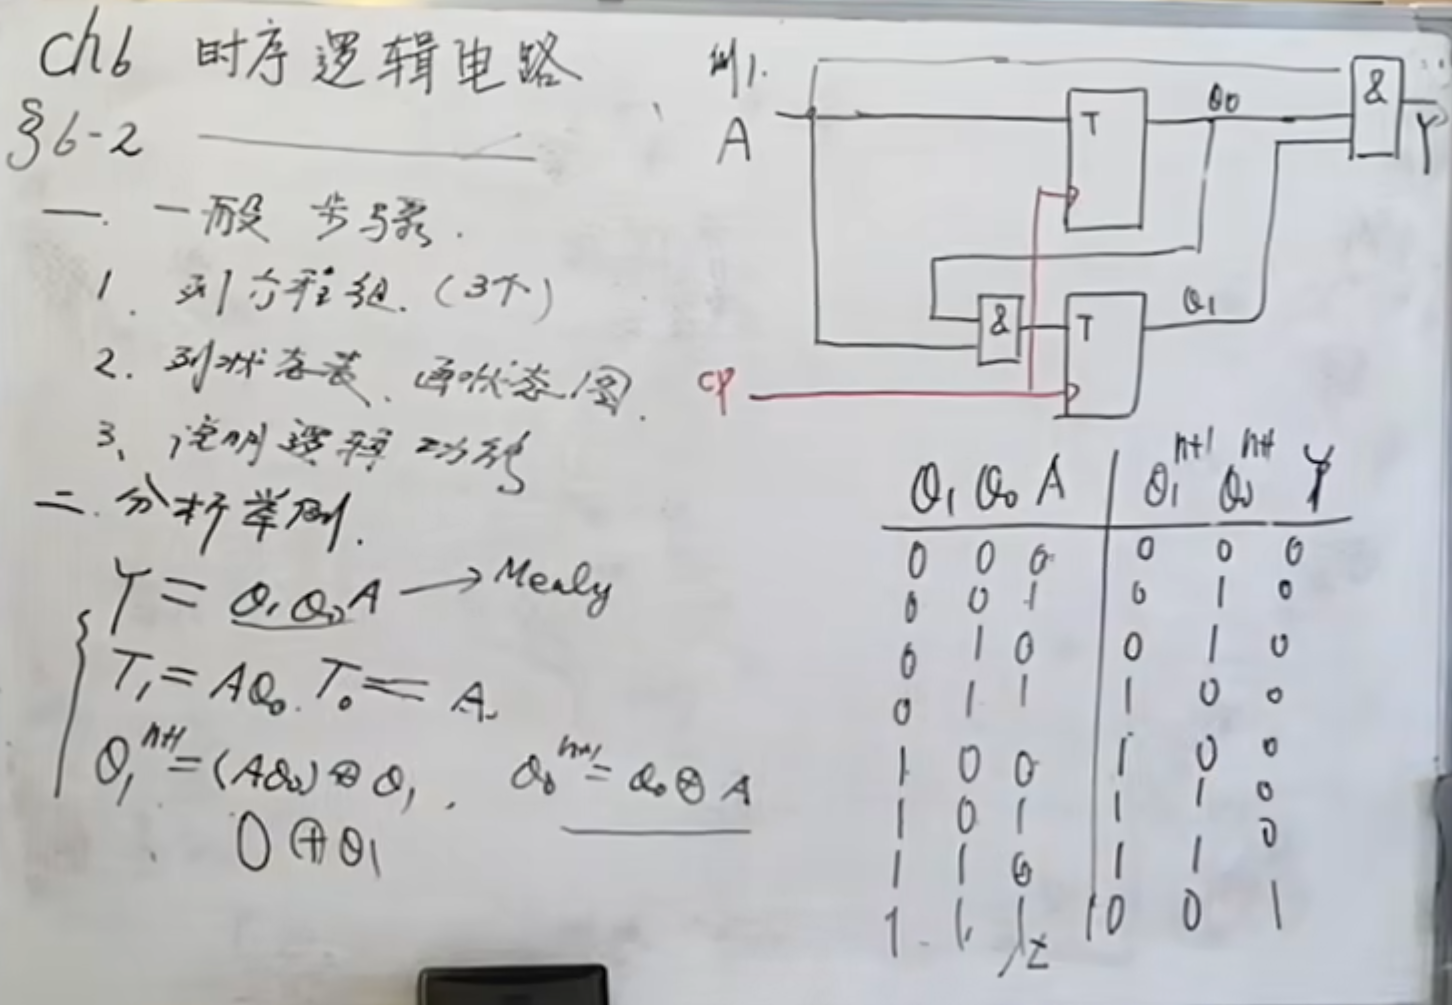 ch6 时序逻辑电路
§6-2
一. 一般步骤.
1. 列方程组. (3个)
2. 列状态表、画状态图.
3、说明逻辑功能
二. 分析举例.
Y = Q₁Q₀A → Mealy
T₁ = AQ₀. T₀ = A.
Q₁ⁿ⁺¹ = (AQ₀) ⊕ Q₁, Q₀ⁿ⁺¹ = Q₀ ⊕ A
0 ⊕ Q₁
例1.
A
T
Q₀
&
Y
&
T
Q₁
CP
Q₁ Q₀ A | Q₁ⁿ⁺¹ Q₀ⁿ⁺¹ Y
0 0 0 | 0 0 0
0 0 1 | 0 1 0
0 1 0 | 0 1 0
0 1 1 | 1 0 0
1 0 0 | 1 0 0
1 0 1 | 1 1 0
1 1 0 | 1 1 0
1 1 1 | 0 0 1